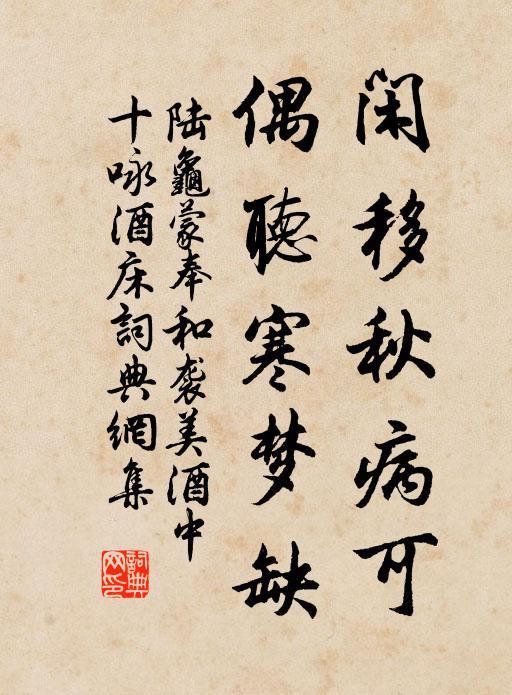 闲移秋病可
偶聽寒梦缺
陆龜蒙奉和袭美酒中
十咏酒床詞典網集
詞典
网印